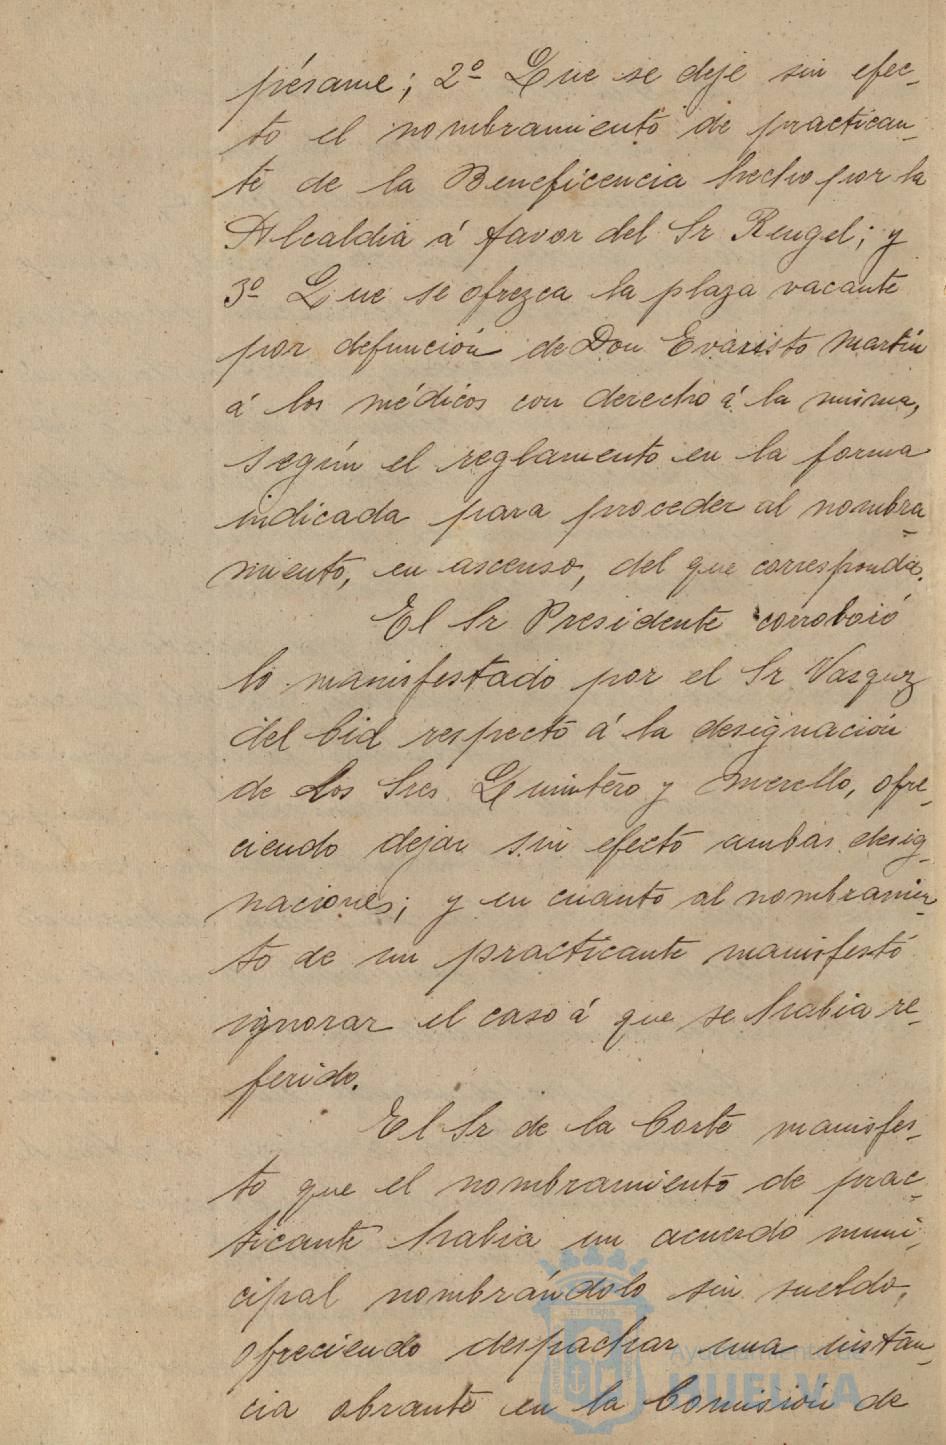 pésame; 2º Que se deje sin efec-
to el nombramiento de practican-
te de la Beneficencia hecho por la
Alcaldia á favor del Sr Rengel; y
3º Que se ofrezca la plaza vacante
por defunción de Don Evaristo Martin
á los médicos con derecho á la misma,
según el reglamento en la forma
indicada para proceder al nombra-
miento, en ascenso, del que corresponda.
El Sr Presidente corroboró
lo manifestado por el Sr Vazquez
del Cid respecto á la designación
de los Sres Quintero y Merello, ofre-
ciendo dejar sin efecto ambas desig-
naciones; y en cuanto al nombramien-
to de un practicante manifestó
ignorar el caso á que se habia re-
ferido.
El Sr de la Corte manifes-
to que el nombramiento de prac-
ticante habia un acuerdo muni-
cipal nombrándolo sin sueldo,
ofreciendo despachar una instan-
cia obrante en la Comisión de
Ayuntamiento de
HUELVA